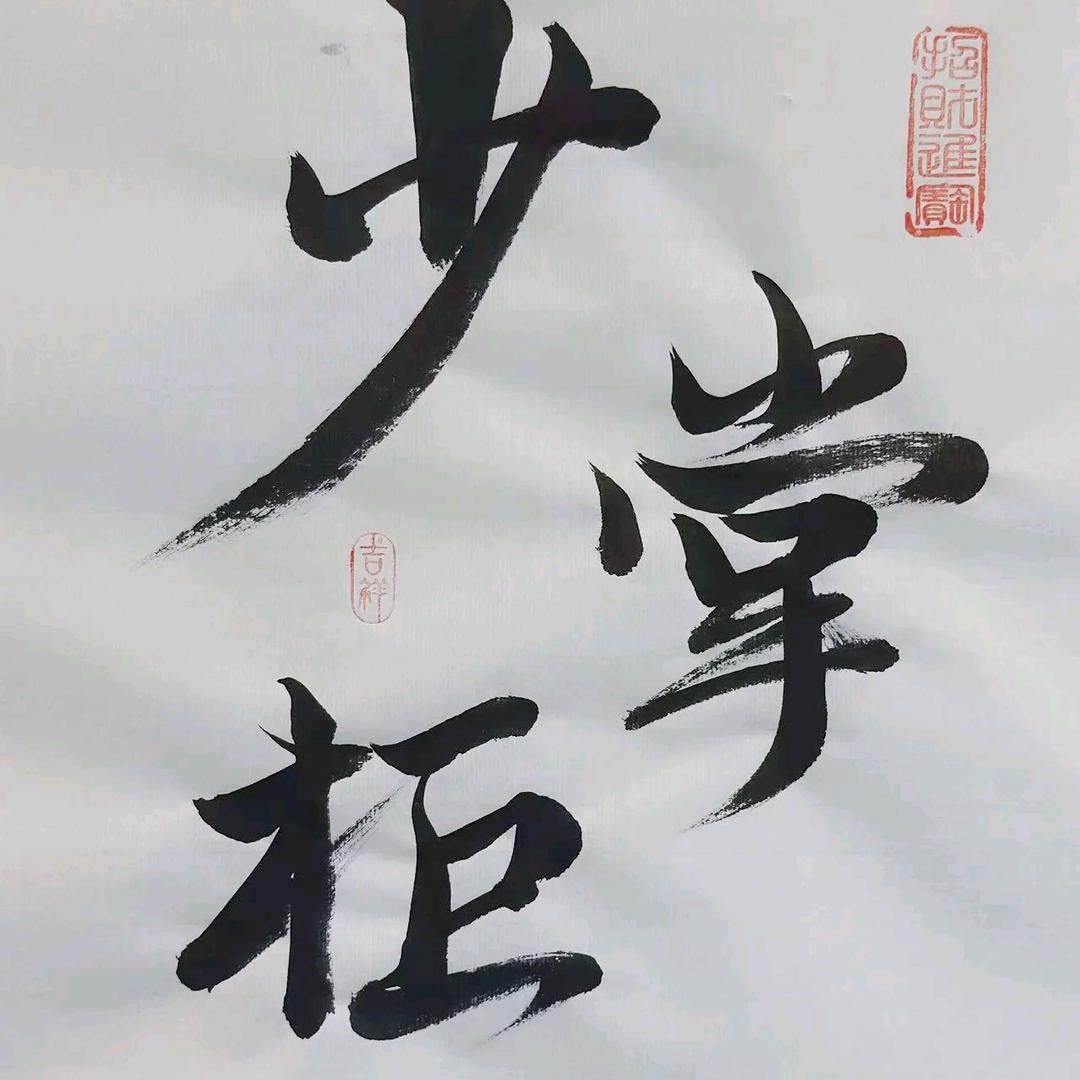 少
掌
柜
招財進寶
吉祥